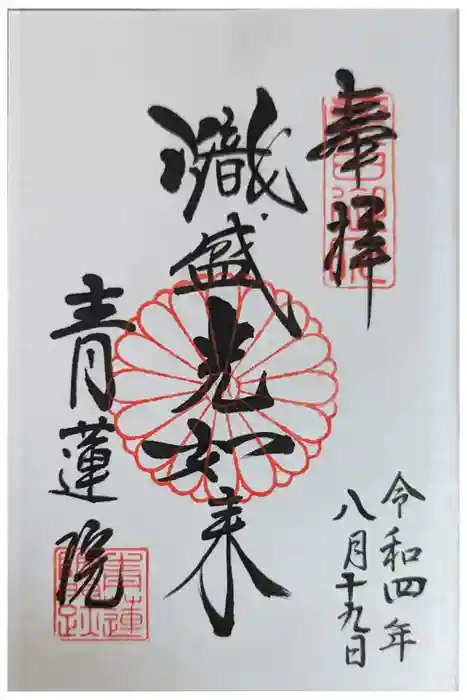 奉拝
令和四年
八月十九日
熾盛光如来
青蓮院
青蓮
門跡